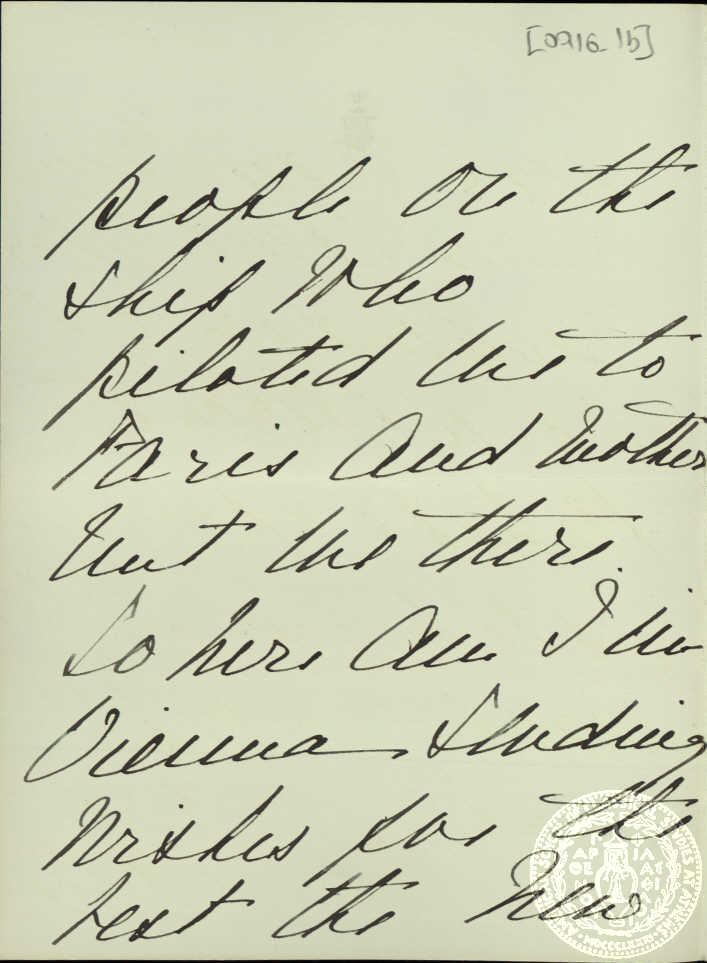 [0716_15]
people on the
ship who
piloted me to
Paris and Mother
met me there.
So here am I in
Vienna sending
wishes for the
best the New